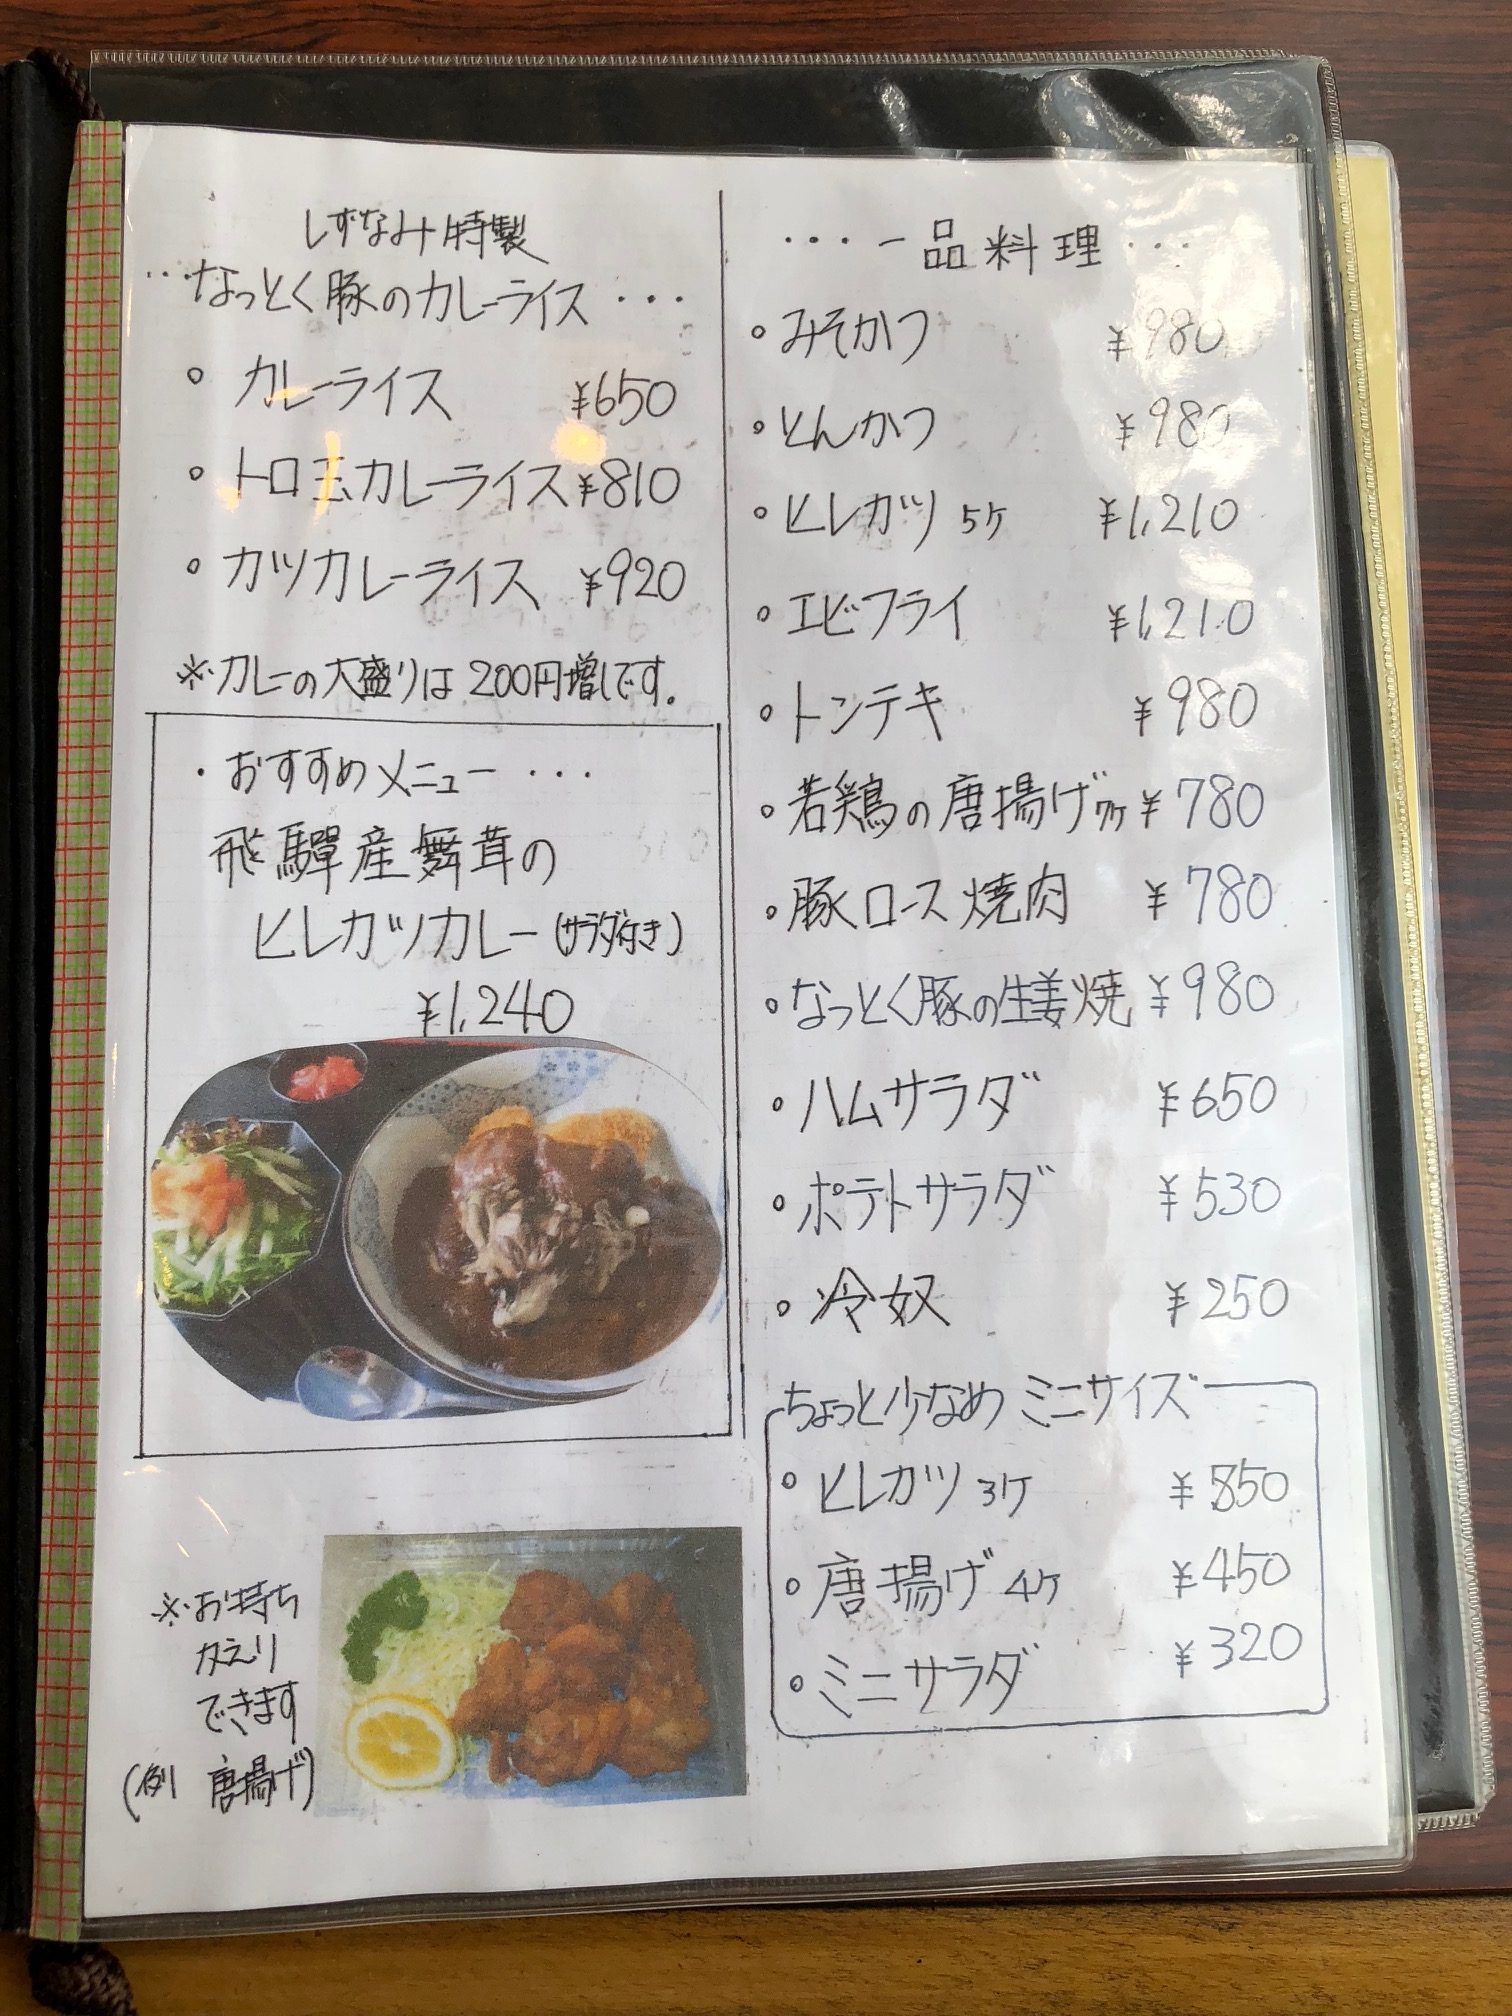 しずなみ特製
・・・なっとく豚のカレーライス・・・
○ カレーライス ¥650
○ トロ玉カレーライス ¥810
○ カツカレーライス ¥920
※カレーの大盛りは200円増しです。
・おすすめメニュー・・・
飛騨産舞茸の
ヒレカツカレー(サラダ付き)
¥1,240
※お持ち
かえり
できます
(例 唐揚げ)
・・・一品料理・・・
○ みそかつ ¥980
○ とんかつ ¥980
○ ヒレカツ 5ケ ¥1,210
○ エビフライ ¥1,210
○ トンテキ ¥980
○ 若鶏の唐揚げ 7ケ ¥780
○ 豚ロース焼肉 ¥780
○ なっとく豚の生姜焼 ¥980
○ ハムサラダ ¥650
○ ポテトサラダ ¥530
○ 冷奴 ¥250
ちょっと少なめ ミニサイズ
○ ヒレカツ 3ケ ¥850
○ 唐揚げ 4ケ ¥450
○ ミニサラダ ¥320